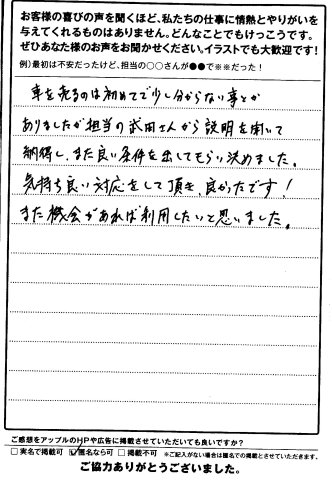 お客様の喜びの声を聞くほど、私たちの仕事に情熱とやりがいを
与えてくれるものはありません。どんなことでもけっこうです。
ぜひあなた様のお声をお聞かせください。イラストでも大歓迎です！
例）最初は不安だったけど、担当の○○さんが●●で※※だった！
車を売るのは初めてで少し分からない事とか
ありましたが担当の武田さんから説明を聞いて
納得し、また良い条件を出してもらい決めました。
気持ち良い対応をして頂き、良かったです！
また機会があれば利用したいと思いました。
ご感想をアップルのHPや広告に掲載させていただいても良いですか？
□実名で掲載可 ☑匿名なら可 □掲載不可 ※ご記入がない場合は匿名での掲載とさせていただきます。
ご協力ありがとうございました。